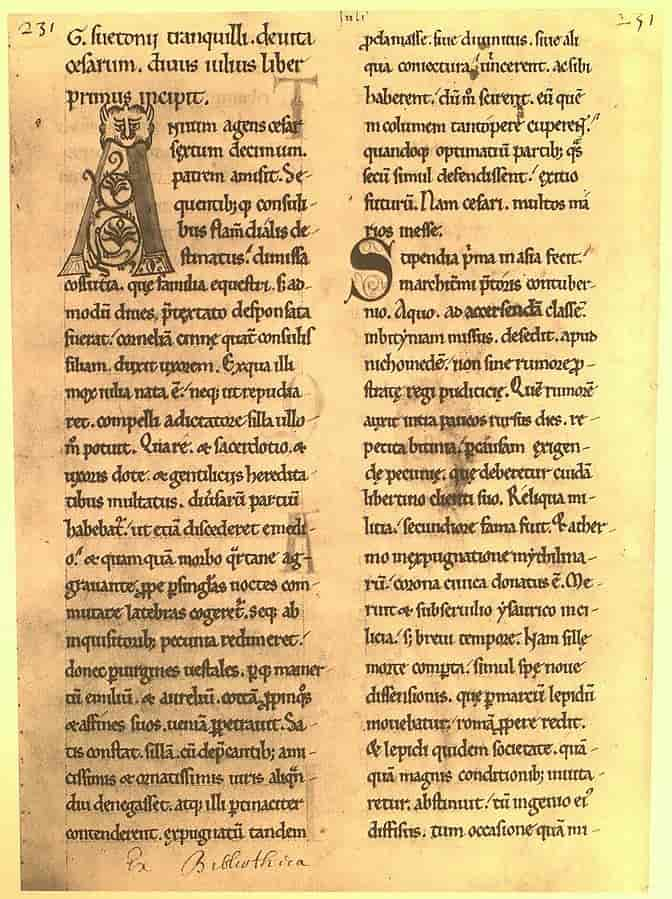 231
Juli
231
G. suetonij tranquilli. de uita
cesarum. diuus iulius liber
primus incipit.
Annum agens cesar
sextum decimum.
patrem amisit. Se-
quentibꝫqꝫ consuli-
bus flam̄ dialis de-
stinatus. dimissa
cossutia. que familia equestri. sꝫ ad-
modū diues. p̄textato desponsata
fuerat. corneliā cinne quat̄ consulis
filiam. duxit uxorem. Ex qua illi
mox iulia nata ē. neqꝫ ut repudia
ret. compelli a dictatore silla ullo
m̊ potuit. Quare. & sacerdotio. &
uxoris dote. & gentiliciis heredita
tibus multatus. diuersarū partiū
habebat᷑. ut etiā discederet e medi-
o. & quamquā morbo q̄rtane ag-
grauante. ꝓpe ꝑ singl̄as noctes com-
mutare latebras cogeret᷑. seqꝫ ab
inquisitoribꝫ pecunia redimeret.
donec ꝑ uirgines uestales. ꝑqꝫ mamer
tū emiliū. & aureliū. cottā ꝓpinq̊s
& affines suos. ueniā ꝓpetrauit. Sa-
tis constat. sillā. cū dep̄cantibꝫ ami-
cissimis & ornatissimis uiris aliqn̄-
diu denegasset. atqꝫ illi ꝑtinaciter
contenderent. expugnatū tandem
ꝓclamasse. siue diuinitus. siue ali
qua coniectura. uincerent. ac sibi
haberent. dūm̊ scirent. eū quē
incolumem tantopere cuperent.
quandoqꝫ optimatiū partibꝫ q̊s
secū simul defendissent. exitio
futurū. Nam cesari. multos ma
rios inesse.
Stipendia p̓ma in asia fecit.
marchi termi p̄toris contuber-
nio. A quo. ad accersendā classē.
in bityniam missus. desedit. apud
nichomedē. non sine rumore ꝓ-
strate regi pudicicię. Quē rumorē
auxit intra paucos rursus dies. re-
petita bitinia. ꝑ causam exigen-
dę pecunię. que deberetur cuidā
libertino clienti suo. Reliqua mi-
litia. secundiore fama fuit. & a ther-
mo in expugnatione mythilina-
rū. corona ciuica donatus ē. Me-
ruit & sub seruilio ysaurico in ci-
licia. sꝫ breui tempore. Nam sille
morte comꝑta. simul spe noue
dissensionis. que ꝑ marcū lepidū
mouebatur. romā ꝓpere redit.
& lepidi quidem societate. quā-
quā magnis conditionibꝫ inuita-
retur. abstinuit. tū ingenio eiꝰ
diffisus. tum occasione quā mi-
Ex Bibliotheca